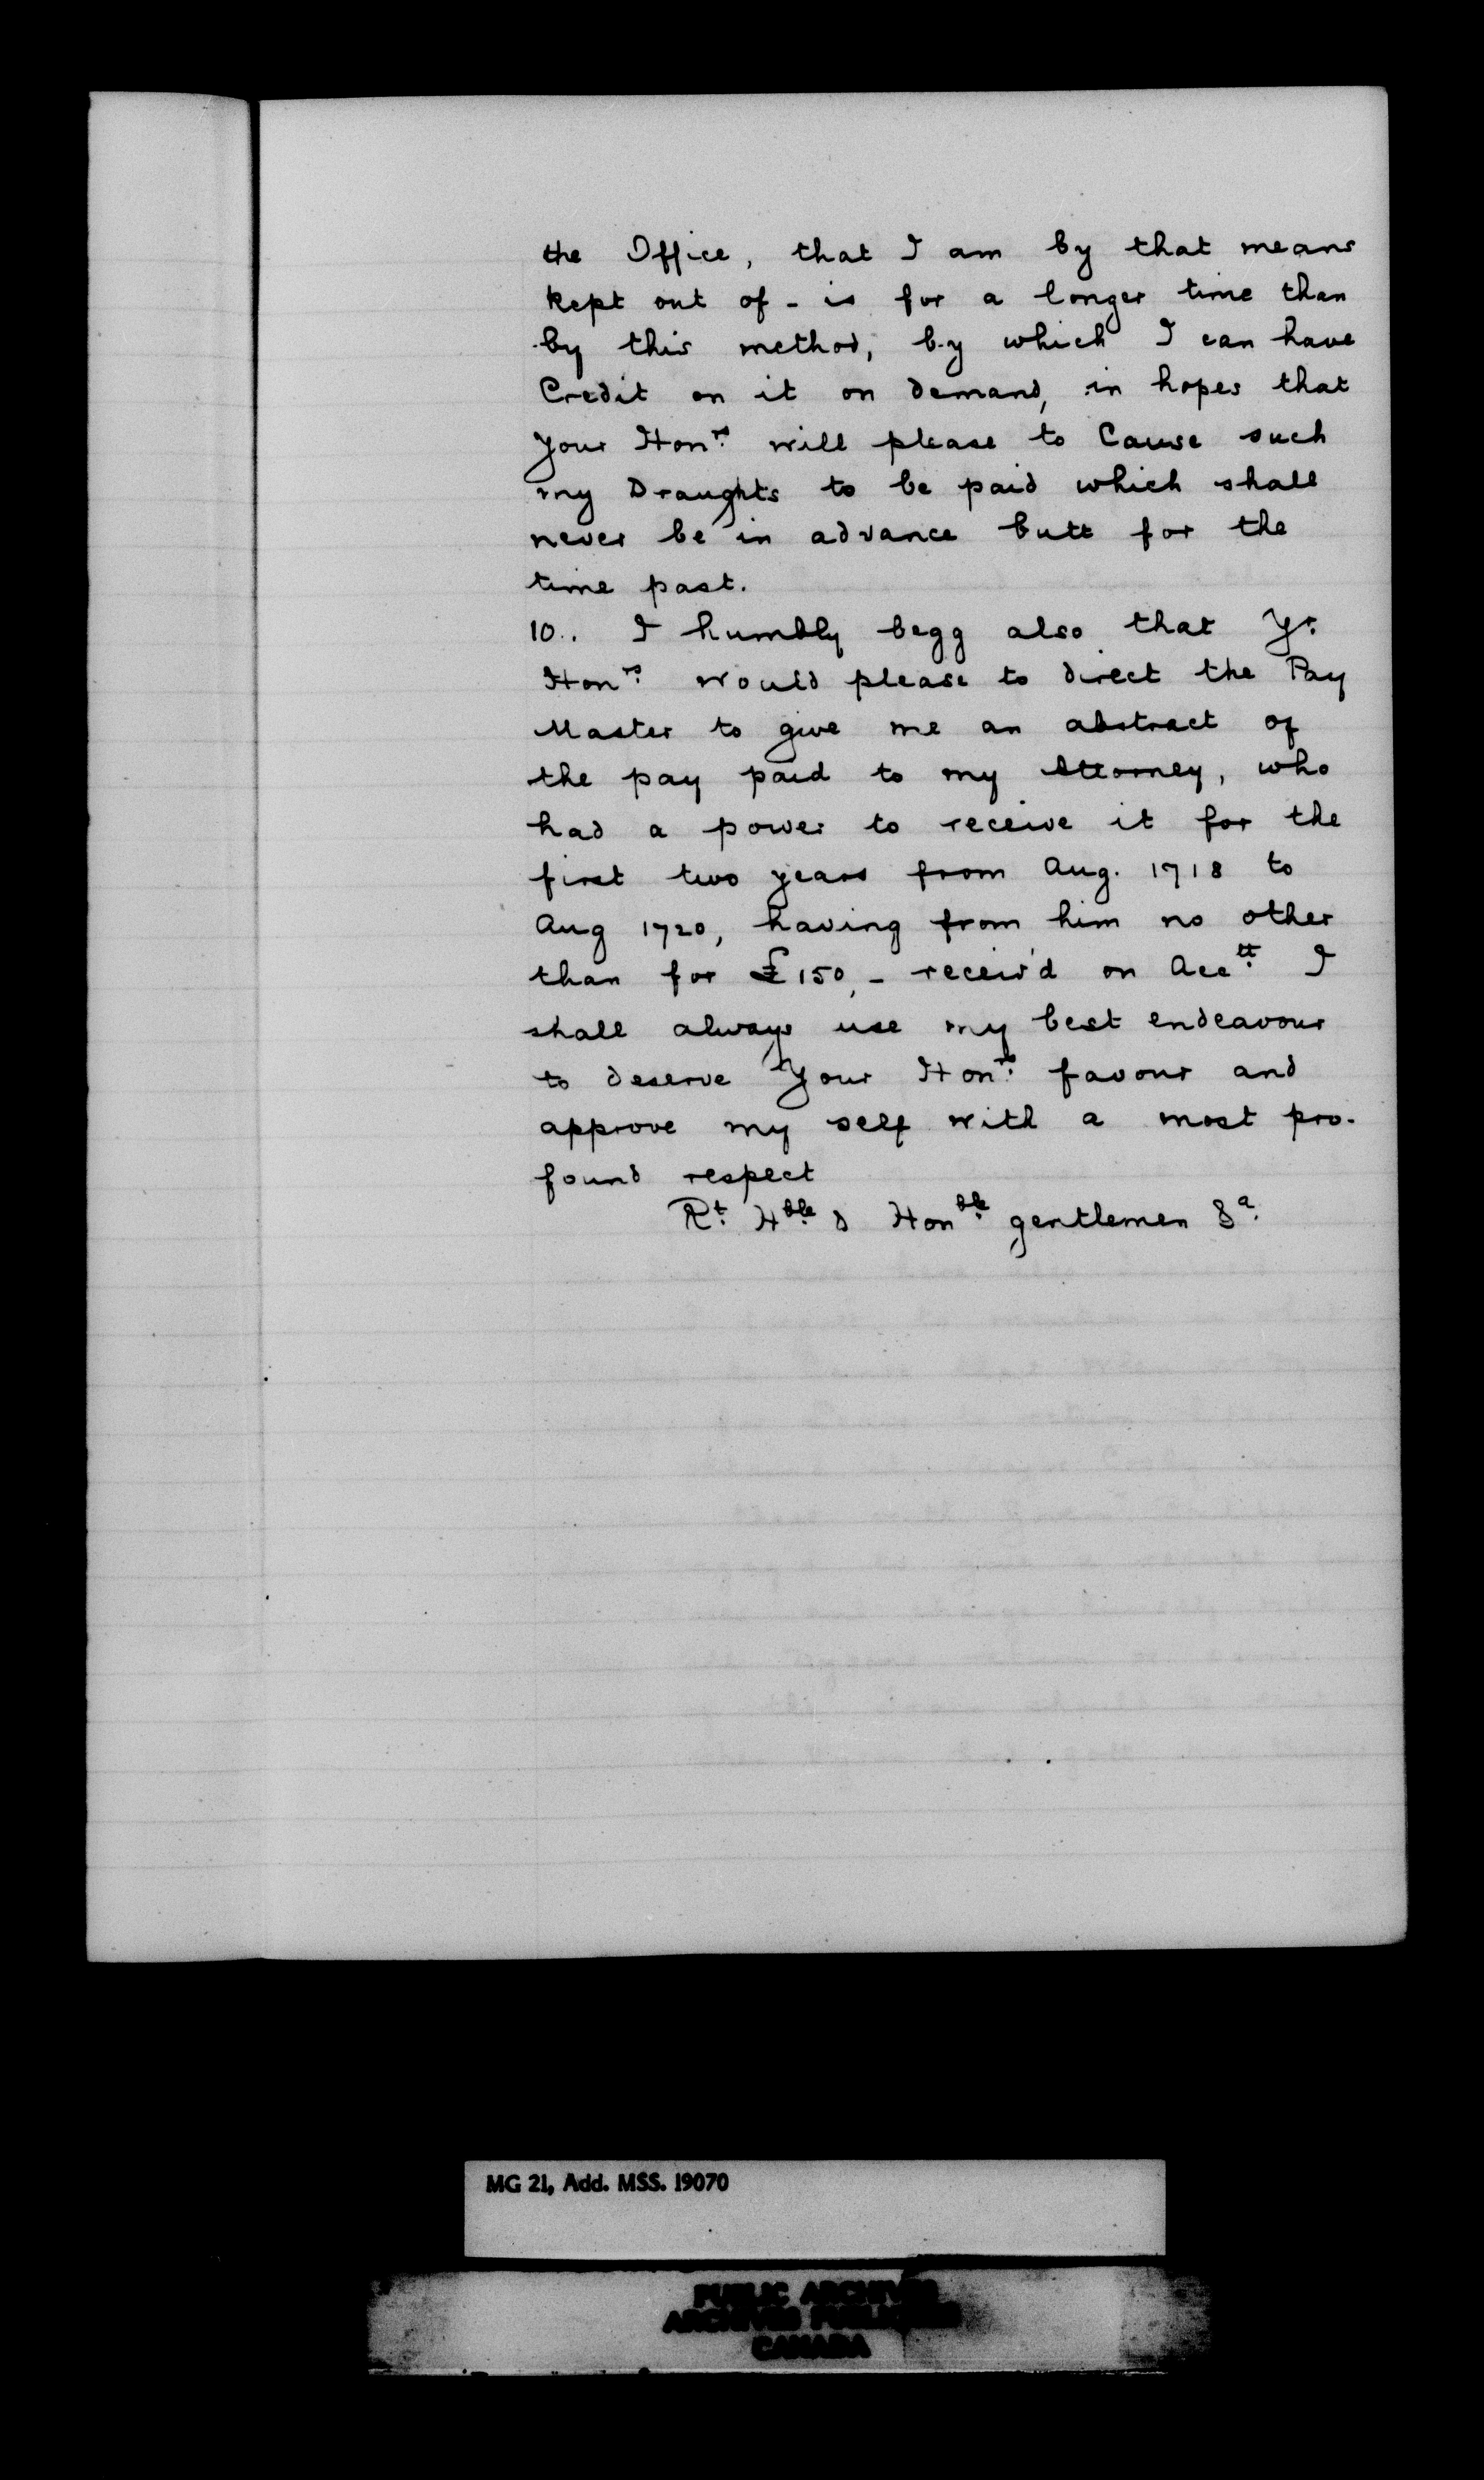 the Office, that I am by that means
kept out of - is for a longer time than
by this method, by which I can have
Credit on it on demand, in hopes that
your Hon.rs will please to Cause such
my Draughts to be paid which shall
never be in advance butt for the
time past.
10.. I humbly begg also that Yr.
Hon.rs would please to direct the Pay
Master to give me an abstract of
the pay paid to my Attorney, who
had a power to receive it for the
first two years from Aug. 1718 to
Aug 1720, having from him no other
than for £150,- receiv'd on Acc.tt I
shall always use my best endeavour
to deserve Your Hon.rs favour and
approve my self with a most pro-
found respect
R.t H.ble & Hon.ble gentlemen &a.
MG 21, Add. MSS. 19070
PUBLIC ARCHIVES
ARCHIVES PUBLIQUES
CANADA